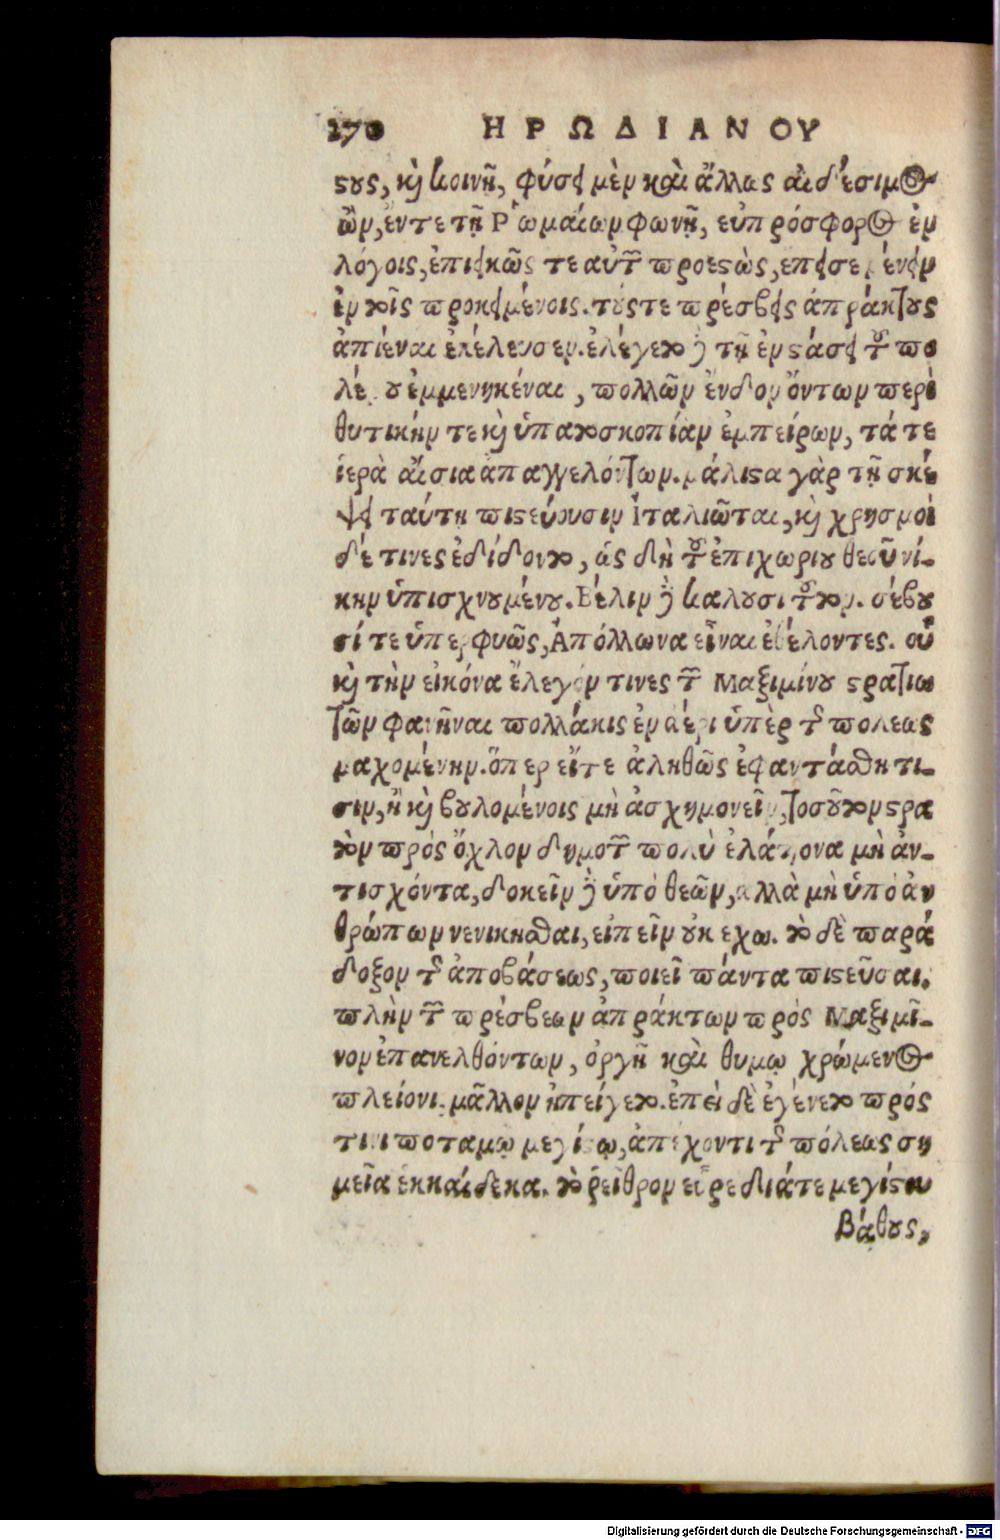 270 ΗΡΩΔΙΑΝΟΥ
στους, καὶ κοινῆ, φύσει μὲν καὶ ἄλλως αἰδέσιμος
ὢν, ἔν τε τῇ Ῥωμαίων φωνῇ, εὐπρόσφορος ἐν
λόγοις, ἐπιεικῶς τε αὐτῶν προεστὼς, επεισε μένειν
ἐν τοῖς προκειμένοις. τούς τε πρέσβεις ἀπράκτους
ἀπιέναι ἐκέλευσεν. ἐλέγετο δὲ τῇ ἐνστάσει τοῦ πο
λέμου ἐμμενηκέναι, πολλῶν ἔνδον ὄντων περὶ
θυτικήν τε καὶ ἡπατοσκοπίαν ἐμπείρων, τά τε
ἱερὰ αἴσια ἀπαγγελόντων. μάλιστα γὰρ τῇ σκέ
ψει ταύτῃ πιστεύουσιν Ἰταλιῶται, καὶ χρησμοὶ
δέ τινες ἐδίδοντο, ὡς δὴ τοῦ ἐπιχωρίου θεοῦ νί-
κην ὑπισχνουμένου. Βέλιν δὲ καλοῦσι τοῦτον. σέβου
σί τε ὑπερφυῶς, Ἀπόλλωνα εἶναι ἐθέλοντες. οὗ
καὶ τὴν εἰκόνα ἔλεγόν τινες τῶν Μαξιμίνου στρατιω
τῶν φανῆναι πολλάκις ἐν ἀέρι ὑπὲρ τῆς πόλεως
μαχομένην. ὅπερ εἴτε ἀληθῶς ἐφαντάσθη τι-
σιν, ἢ καὶ βουλομένοις μὴ ἀσχημονεῖν, τοσοῦτον στρα
τὸν πρὸς ὄχλον δημοτῶν πολὺ ἐλάττονα μὴ ἀν-
τισχόντα, δοκεῖν δὲ ὑπὸ θεῶν, ἀλλὰ μὴ ὑπὸ ἀν
θρώπων νενικῆσθαι, εἰπεῖν οὐκ εχω. τὸ δὲ παρά
δοξον τῆς ἀποβάσεως, ποιεῖ πάντα πιστεῦσαι.
πλὴν τῶν πρέσβεων ἀπράκτων πρὸς Μαξιμῖ-
νον ἐπανελθόντων, ὀργῇ καὶ θυμῳ χρώμενος
πλείονι μᾶλλον ἠπείγετο. ἐπεὶ δὲ ἐγένετο πρός
τινι ποταμῳ μεγίστῳ, ἀπέχοντι τῆς πόλεως ση
μεῖα ἑκκαίδεκα. τὸ ῥεῖθρον εὗρε διά τε μεγίστου
βάθους,
Digitalisierung gefördert durch die Deutsche Forschungsgemeinschaft - DFG